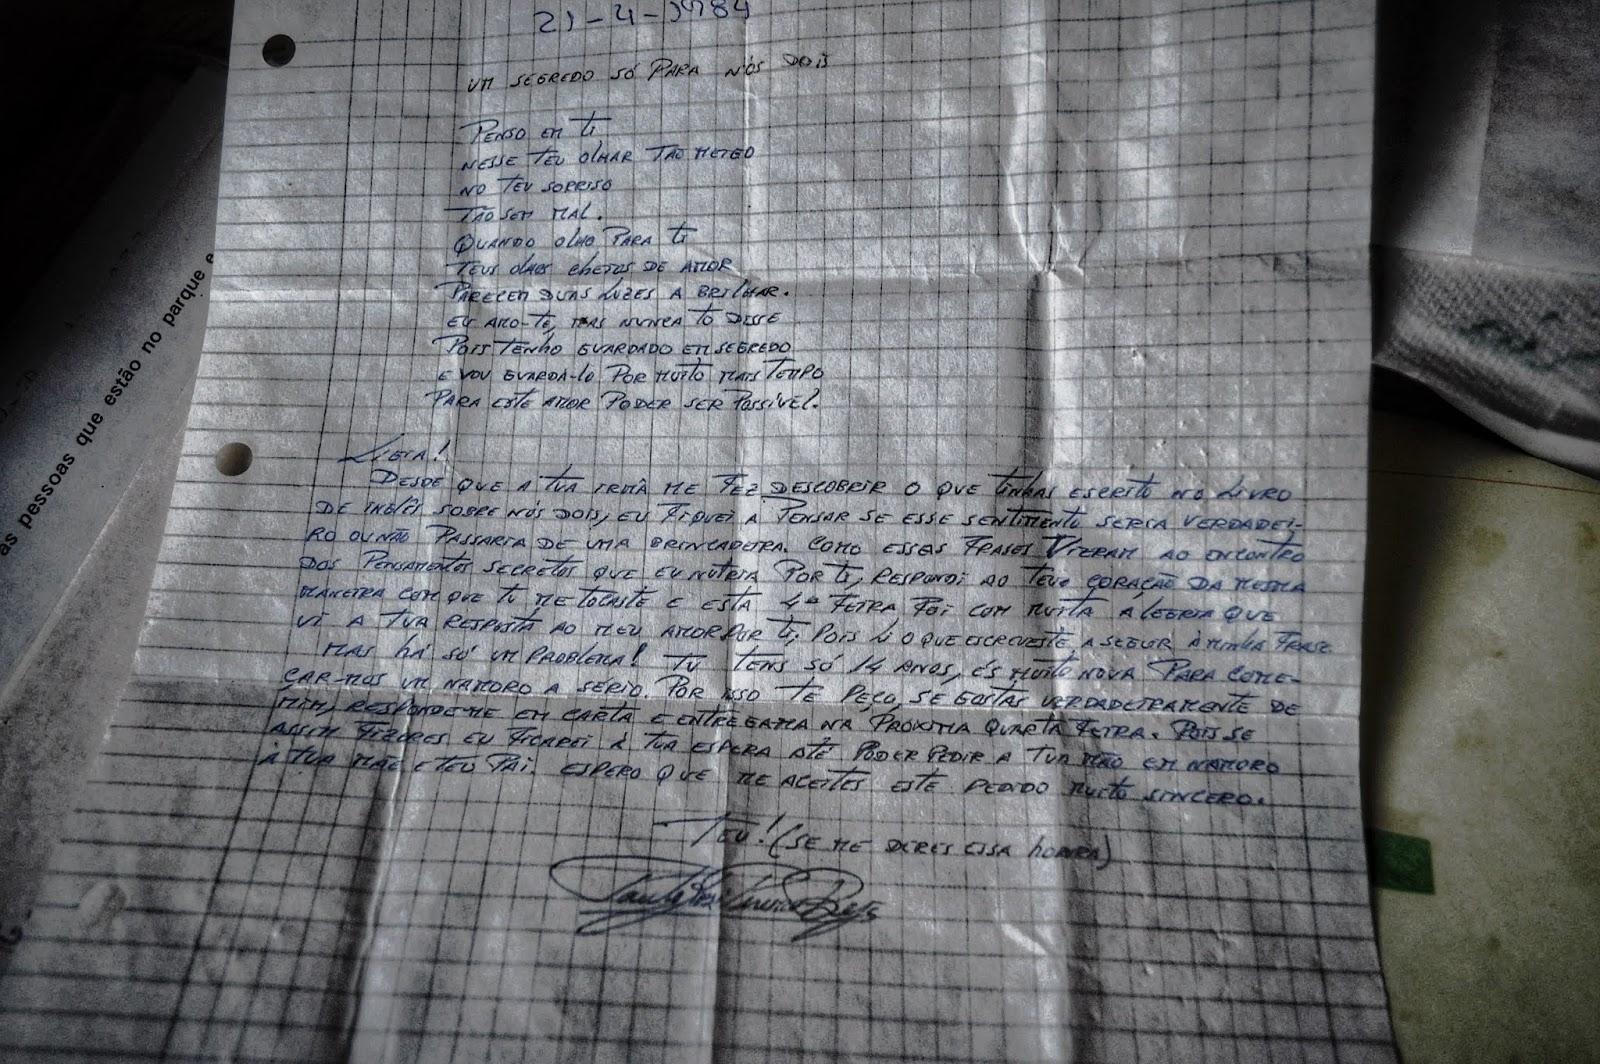 21-4-1984
UM SEGREDO SÓ PARA NÓS DOIS
PENSO EM TI
NESSE TEU OLHAR TÃO MEIGO
NO TEU SORRISO
TÃO SEM MAL.
QUANDO OLHO PARA TI
TEUS OLHOS CHEIOS DE AMOR
PARECEM DUAS LUZES A BRILHAR.
EU AMO-TE, MAS NUNCA TO DISSE
POIS TENHO GUARDADO EM SEGREDO
E VOU GUARDÁ-LO POR MUITO MAIS TEMPO
PARA ESTE AMOR PODER SER POSSÍVEL.
DESDE QUE A TUA IRMÃ ME FEZ DESCOBRIR O QUE TINHAS ESCRITO NO LIVRO
DE INGLÊS SOBRE NÓS DOIS, EU FIQUEI A PENSAR SE ESSE SENTIMENTO SERIA VERDADEI-
RO OU NÃO PASSARIA DE UMA BRINCADEIRA. COMO ESSAS FRASES VIERAM AO ENCONTRO
DOS PENSAMENTOS SECRETOS QUE EU NUTRIA POR TI, RESPONDI AO TEU CORAÇÃO DA MESMA
MANEIRA COM QUE TU ME TOCASTE E ESTA 4ª FEIRA FOI COM MUITA ALEGRIA QUE
VI A TUA RESPOSTA AO MEU AMOR POR TI, POIS LI O QUE ESCREVESTE A SEGUIR À MINHA FRASE
MAS HÁ SÓ UM PROBLEMA! TU TENS SÓ 14 ANOS, ÉS MUITO NOVA PARA COME-
ÇAR-MOS UM NAMORO A SÉRIO. POR ISSO TE PEÇO, SE GOSTAS VERDADEIRAMENTE DE
MIM, RESPONDE-ME EM CARTA E ENTREGA-MA NA PRÓXIMA QUARTA FEIRA. POIS SE
ASSIM FIZERES EU FICAREI À TUA ESPERA ATÉ PODER PEDIR A TUA MÃO EM NAMORO
À TUA MÃE E TEU PAI. ESPERO QUE ME ACEITES ESTE PEDIDO MUITO SINCERO.
TEU! (SE ME DERES ESSA HONRA)
as pessoas que estão no parque e